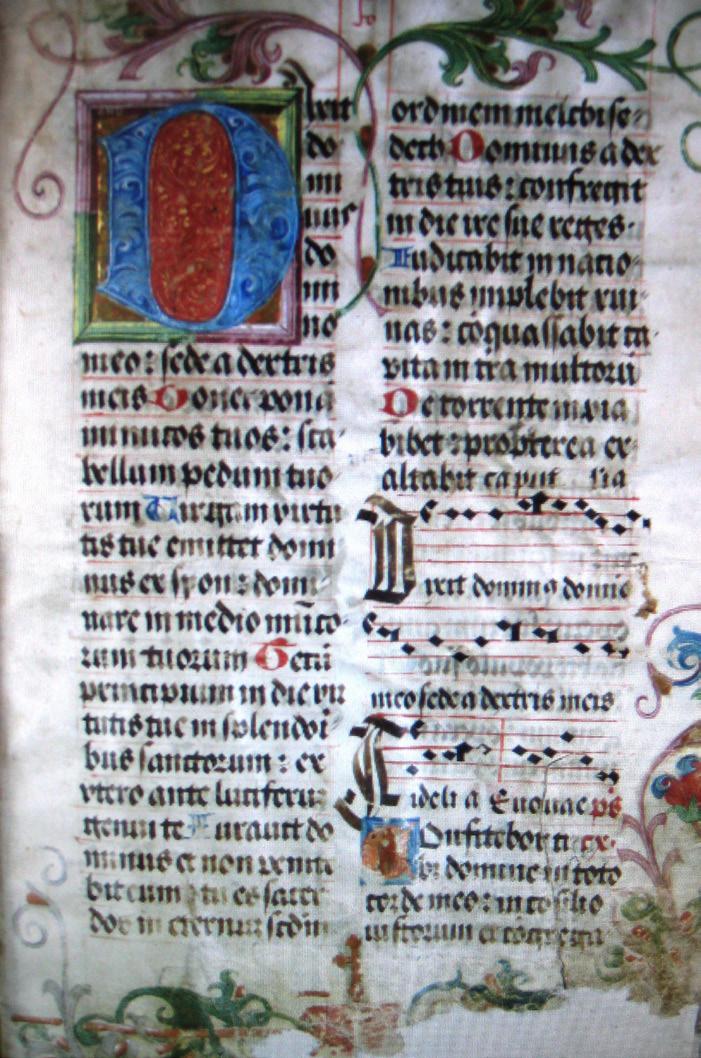 Dixit
do
mi
nus
do
mi
no
meo : sede a dextris
meis Donec ponā
inimicos tuos : sca
bellum pedum tuo
rum Uirgam virtu
tis tue emittet domi
nus ex syon : domi
nare in medio inīco
rum tuorum Tecū
principium in die vir
tutis tue in splendori
bus sanctorum : ex
vtero ante luciferū
genui te Iurauit do
minus et non penite
bit eum : tu es sacer
dos in eternū scdm
ordinem melchise
dech Dominus a dex
tris tuis : confregit
in die ire sue reges
Iudicabit in natio
nibus implebit rui
nas : cōquassabit ca
pita in tra multorū
De torrente in via
bibet : propterea ex
altabit caput
Dixit dominus domino
meo sede a dextris meis
Fideli a Euouae ps
Confitebor ti
bi domine in toto
corde meo : in cōsilio
iustorum et cōgrega